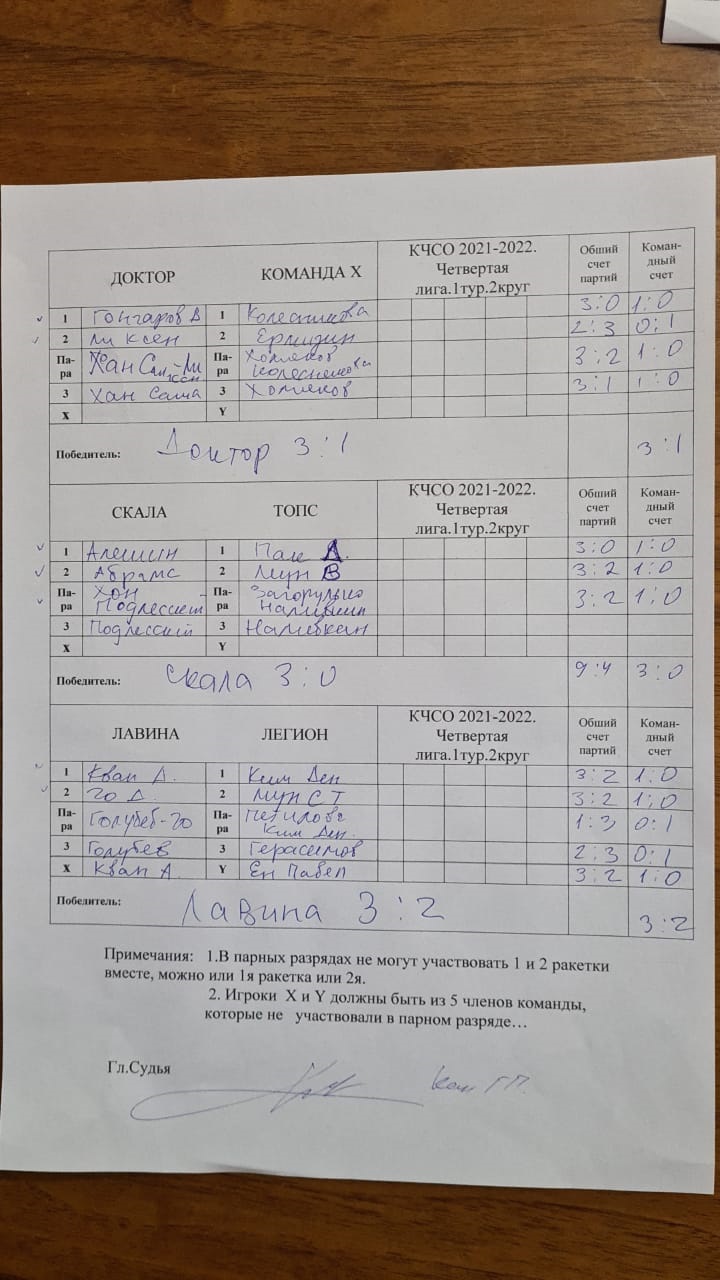 ДОКТОР КОМАНДА Х КЧСО 2021-2022. Четвертая лига.1тур.2круг Общий счет партий Коман-дный счет
1 Гончаров В 1 Колесникова 3:0 1:0
2 Ли Ксен 2 2:3 0:1
Па-ра Хан Саша-Ли Ксен Па-ра Хомяков Колесникова 3:2 1:0
3 Хан Саша 3 Хомяков 3:1 1:0
Х Y
Победитель: Доктор 3:1 3:1
СКАЛА ТОПС КЧСО 2021-2022. Четвертая лига.1тур.2круг Общий счет партий Коман-дный счет
1 Алешин 1 Пак Д. 3:0 1:0
2 Абрамс 2 Мун В 3:2 1:0
Па-ра Хон - Подлесский Па-ра Загорулько Наливкин 3:2 1:0
3 Подлесский 3 Наливкин
Х Y
Победитель: Скала 3:0 9:4 3:0
ЛАВИНА ЛЕГИОН КЧСО 2021-2022. Четвертая лига.1тур.2круг Общий счет партий Коман-дный счет
1 Кван А. 1 Ким Ден 3:2 1:0
2 Го Д. 2 Мун СТ 3:2 1:0
Па-ра Голубев-Го Па-ра Ким Ден. 1:3 0:1
3 Голубев 3 Герасимов 2:3 0:1
Х Кван А. Y Ен Павел 3:2 1:0
Победитель: Лавина 3:2 3:2
Примечания: 1.В парных разрядах не могут участвовать 1 и 2 ракетки
вместе, можно или 1я ракетка или 2я.
2. Игроки Х и Y должны быть из 5 членов команды,
которые не участвовали в парном разряде…
Гл.Судья Ким Г.П.